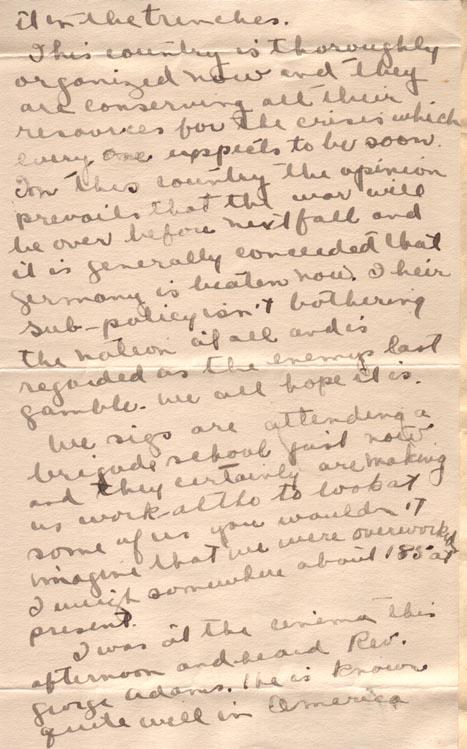 it in the trenches.
This country is thoroughly
organized now and they
are conserving all their
resources for the crisis which
every one expects to be soon.
In this country the opinion
prevails that the war will
be over before next fall and
it is generally conceeded that
Germany is beaten now. Their
sub-policy isn't bothering
the nation at all and is
regarded as the enemys last
gamble. We all hope it is.
We sigs are attending a
brigade school just now
and they certainly are making
us work-altho to look at
some of us you wouldn't
imagine that we were overworked
I weigh somewhere about 185 at
present.
I was at the cinema this
afternoon and heard Rev.
George Adams. He is known
quite well in America